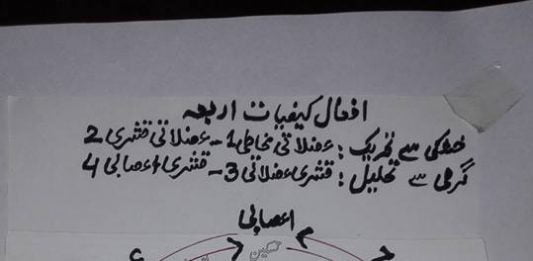 افعال کیفیات اربعہ
خشکی سے تحریک : عضلاتی مخاطی 1 - عضلاتی قشری 2
گرمی سے تحلیل : قشری عضلاتی 3 - قشری اعصابی 4
اعصابی
حسین